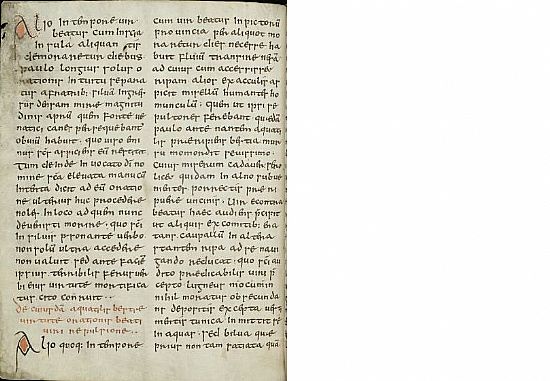 Alio in tempore uir
beatus cum in scia
insula aliquantis
demoraretur diebus
paulo longius solus o
rationis intuitu separa
tus a fratribus siluam ingres
sus densam mire magnitu
dinis aprum quem forte ue
natici canes persequebant
obuium habuit · quo uiso emi
nus scs aspiciens eum restitit
tum deinde inuocato di no
mine sca eleuata manu cum
intenta dicit ad eum oratio
ne ulterius huc procedere
noles in loco ad quem nunc
deuenisti morire · quo sci
in siluis personante uerbo
non solum ultra accedere
non ualuit sed ante faciem
ipsius terribilis ferus uer
bi eius uirtute mortifica
tus cito conruit ··
de cuiusdam aquatilis bestiae
uirtute orationis beati
uiri repulsione ··
Alio quoq; in tempore
cum uir beatus in pictorum
prouincia per aliquot mo
raretur dies necesse ha
buit fluuium transire nesam
ad cuius cum accessisset
ripam alios ex accolis as
picit misellum humantes ho
munculum · quem ut ipsi se
pultores ferebant quidam
paulo ante nantem aquati
lis praeripiens bestia mor
su momordit seuissimo ·
cuius miserum cadauer sero
licet quidam in alno subue
nientes porrectis prae ri
puere uncinis · Uir econtra
beatus haec audiens praecipit
ut aliquis ex comitibus ena
tans caupallum in altera
stantem ripa ad se naui
gando reducat · quo sci au
dito praedicabilis uiri prae
cepto lugneus mocumin
nihil moratus obsecunda
ns depositis excepta ues
mentis tunica inmittit se
in aquas · sed bilua que
prius non tam satiata quam